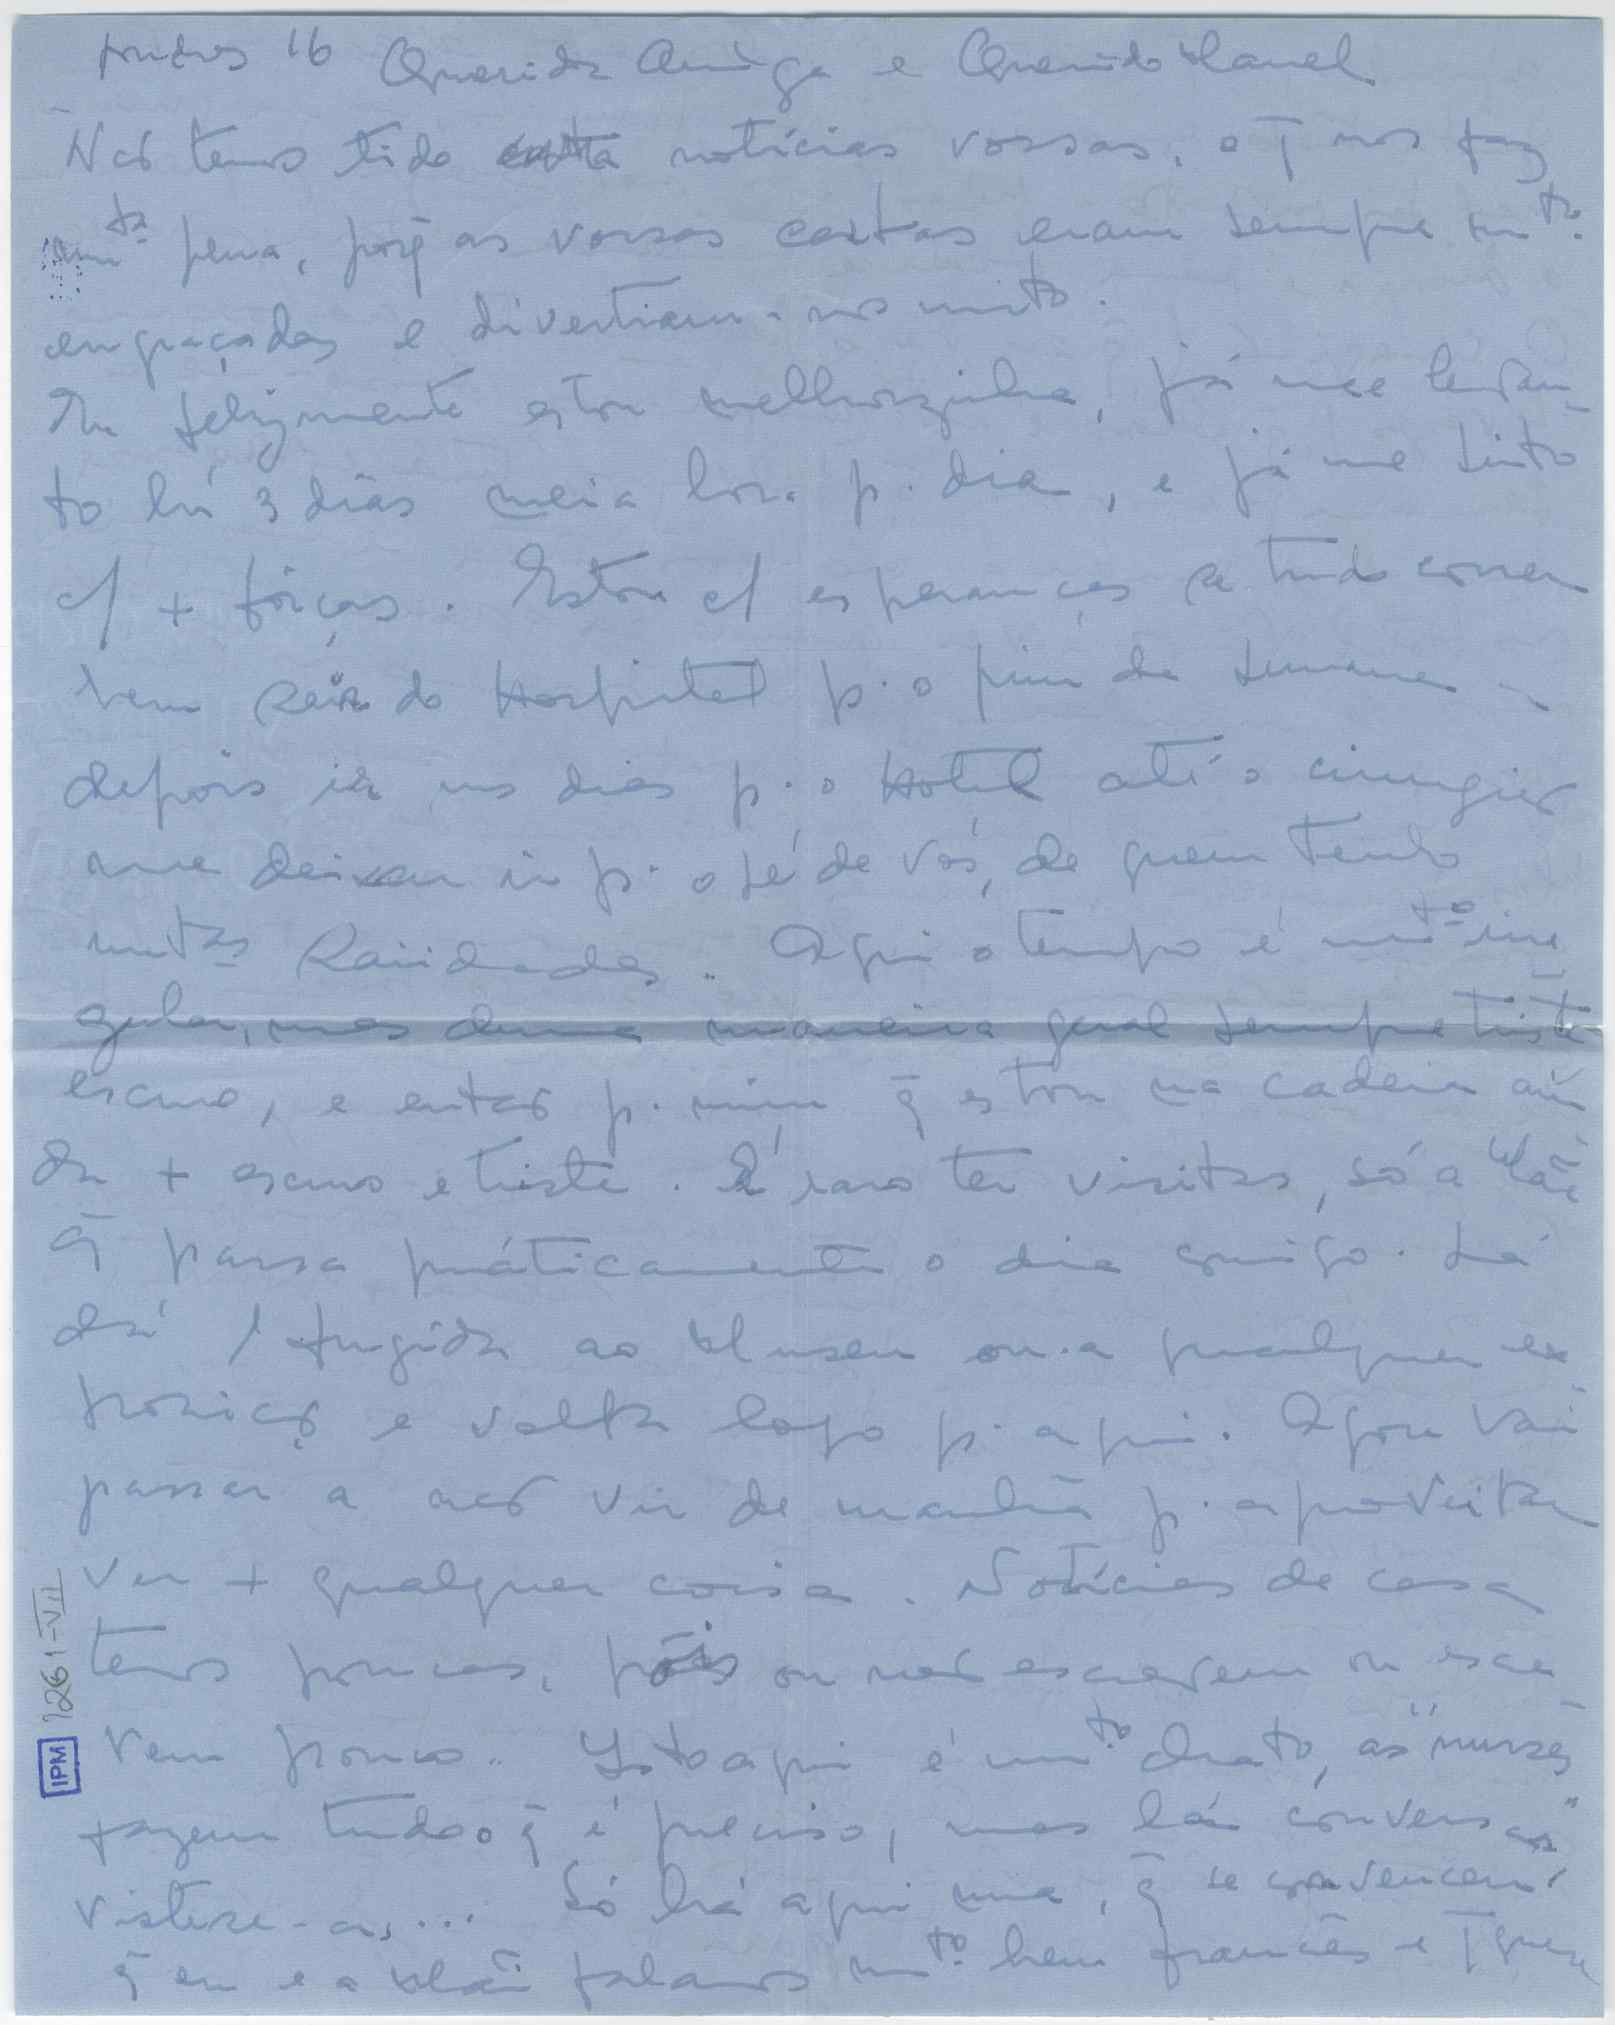 Londres 16 Querida Amiga e Querido Manel
Não temos tido notícias vossas, o q̄ nos faz
mta pena, porq̄ as vossas cartas eram sempre mto.
engraçadas e divertiam-nos muito.
Eu felizmente estou melhorzinha, já me levan-
to há 3 dias meia hora p. dia, e já me sinto
c/ + fôrças. Estou c/ esperanças se tudo correr
bem sair do Hospital p. o fim da semana
depois ir uns dias p. o Hotel até o cirurgião
me deixar ir p. o pé de vós, de quem tenho
mtas saudades. Aqui o tempo é mto irre
gular, mas duma maneira geral sempre triste
escuro, e então p. mim q̄ estou na cadeia ain
da + escuro e triste. É raro ter visitas, só a Mãe
q̄ passa práticamente o dia comigo. Lá
dá 1 fugida ao Museu ou a qualquer ex
posição e volta logo p. aqui. Agora vai
passar a não vir de manhã p. aproveitar
ver + qualquer coisa. Notícias de casa
temos poucas, pois ou não escrevem ou escre
vem pouco. Isto aqui é mto. chato, as "nurses"
fazem tudo o q̄ é preciso, mas lá conversar
viste-as,... Só há aqui uma, q̄ se convenceu
q̄ eu e a Mãe falamos mto. bem francês e q̄ quere
IPM 1261-VII